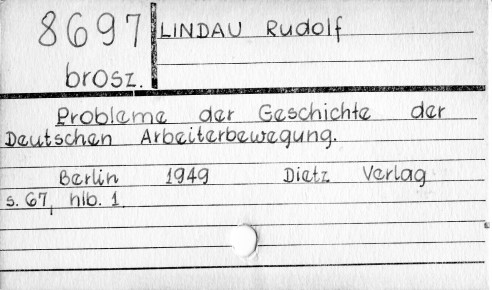 8697 LINDAU Rudolf
brosz.
Probleme der Geschichte der
Deutschen Arbeiterbewegung.
Berlin 1949 Dietz Verlag
s. 67, nlb. 1